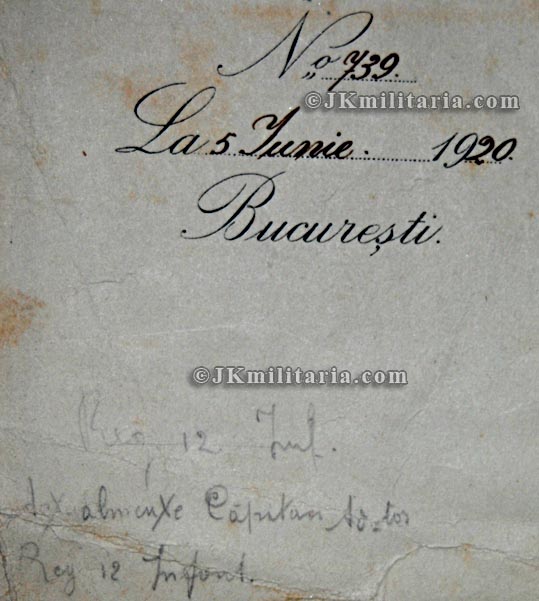 No 739.
©JKmilitaria.com
La 5 Iunie. 1920.
București.
©JKmilitaria.com
Reg 12 Inf.
Capitan
Reg 12 Infant.